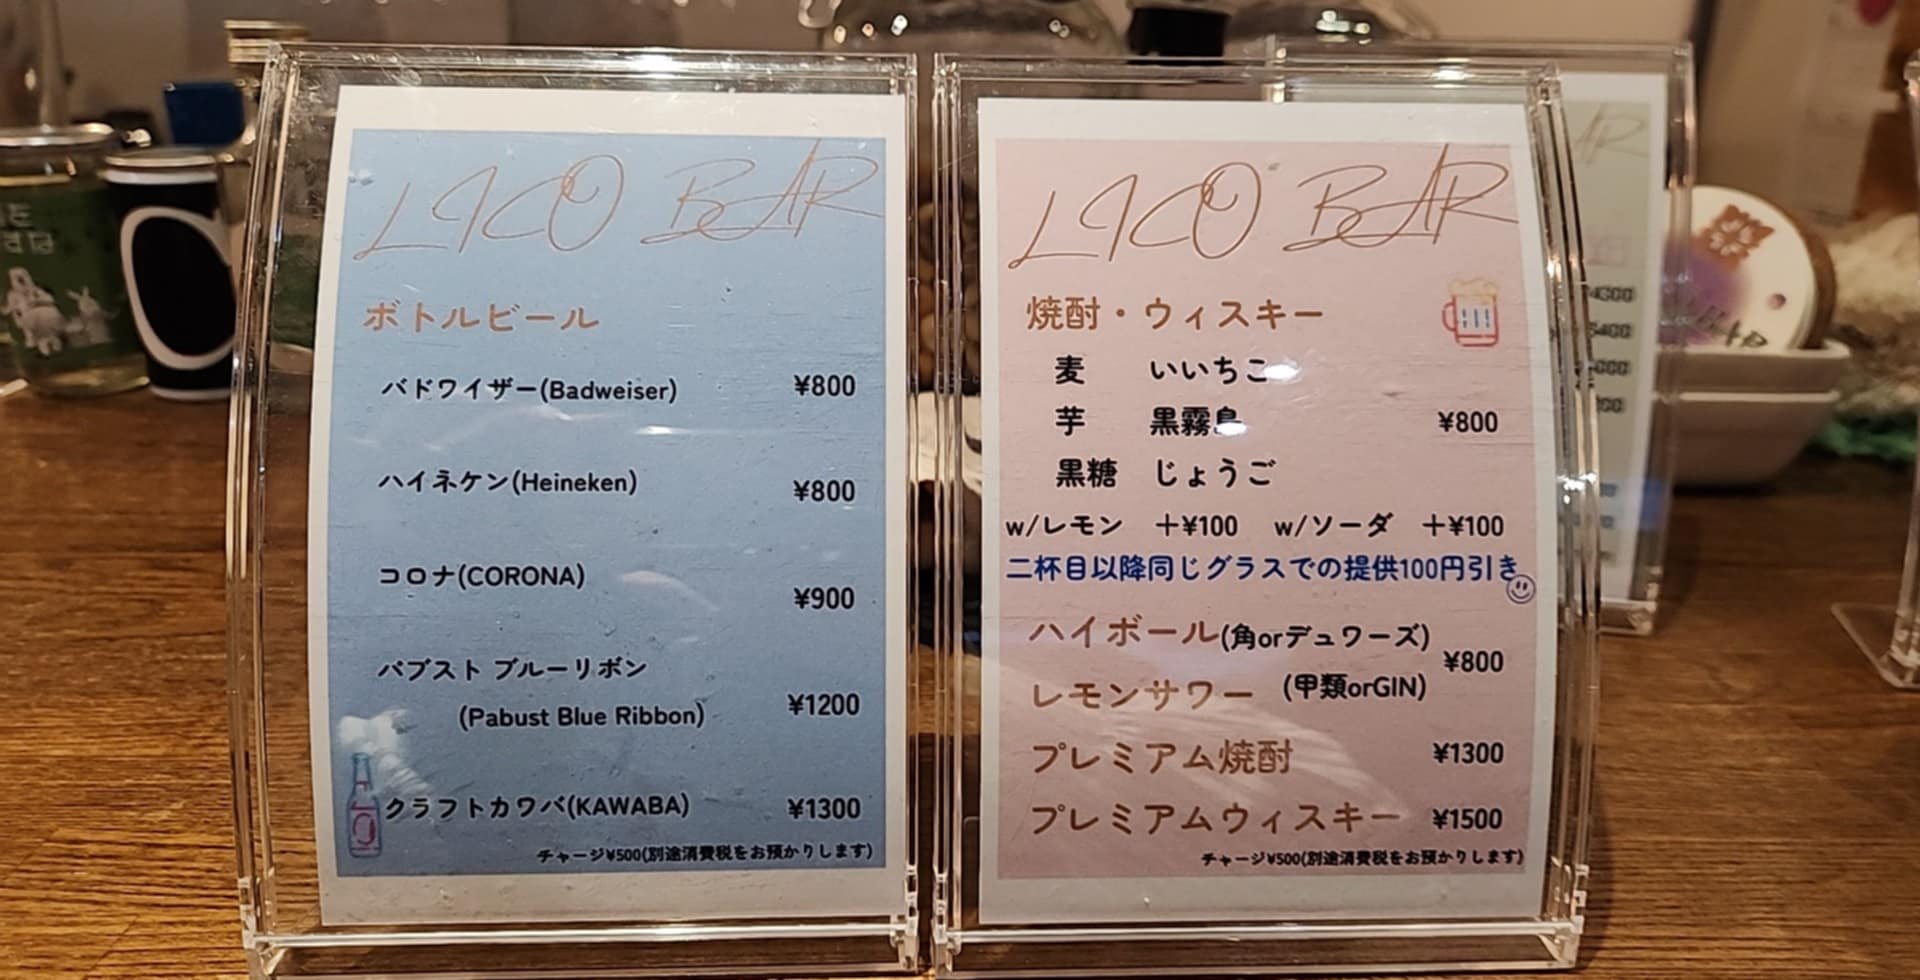 LICO BAR
ボトルビール
バドワイザー(Badweiser) ¥800
ハイネケン(Heineken) ¥800
コロナ(CORONA) ¥900
パブスト ブルーリボン
(Pabust Blue Ribbon) ¥1200
クラフトカワバ(KAWABA) ¥1300
チャージ¥500(別途消費税をお預かりします)
LICO BAR
焼酎・ウィスキー
麦 いいちこ
芋 黒霧島 ¥800
黒糖 じょうご
w/レモン +¥100 w/ソーダ +¥100
二杯目以降同じグラスでの提供100円引き
ハイボール(角orデュワーズ)
¥800
レモンサワー (甲類orGIN)
プレミアム焼酎 ¥1300
プレミアムウィスキー ¥1500
チャージ¥500(別途消費税をお預かりします)